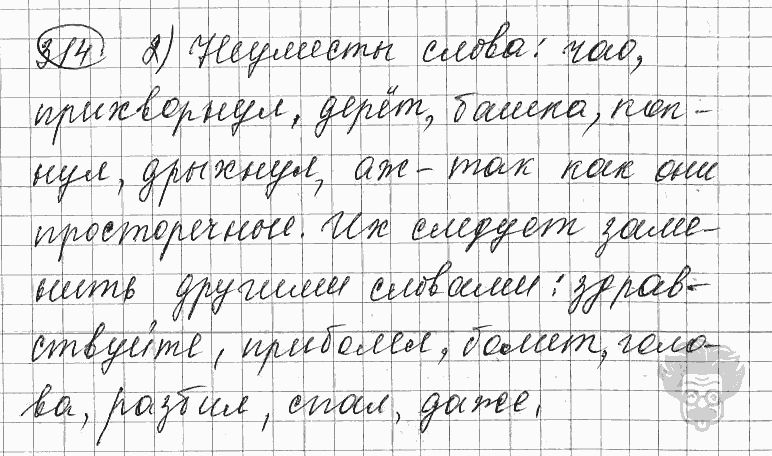 314. 2) Неуместы слова: чао,
прихворнул, дерёт, башка, коп-
нул, дрыхнул, аж – так как они
просторечные. Их следует заме-
нить другими словами: здрав-
ствуйте, приболел, болит, голо-
ва, разбил, спал, даже.